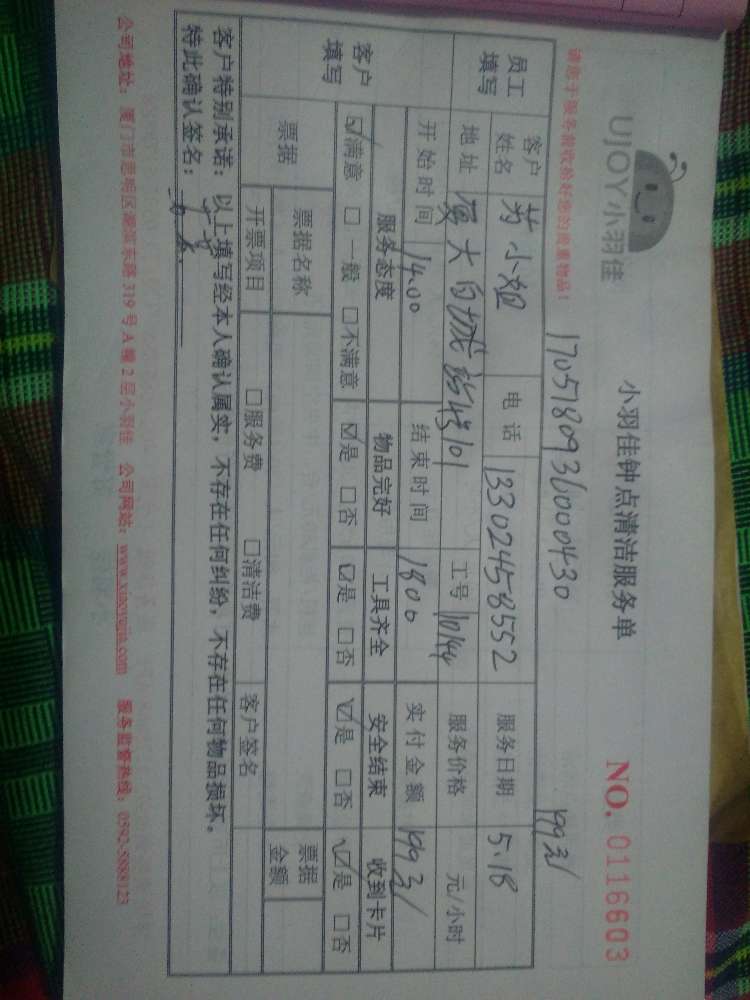 UJOY小羽佳
小羽佳钟点清洁服务单
NO. 0116603
请您于服务前收拾好您的贵重物品！
1705180936000430
1993/
员工填写
客户姓名 小姐 电话 13302458552 服务日期 5.18
地址 厦大白城 101 工号 10144 服务价格 元/小时
开始时间 14.00 结束时间 1800 实付金额 1993/
客户填写
服务态度 物品完好 工具齐全 安全结束 收到卡片
☑满意 □一般 □不满意 ☑是 □否 ☑是 □否 ☑是 □否 ☑是 □否
票据 票据名称 票据金额
开票项目 □服务费 □清洁费 客户签名
客户特别承诺：以上填写经本人确认属实，不存在任何纠纷，不存在任何物品损坏。
特此确认签名：
公司地址：厦门市思明区湖滨东路319号A幢2层小羽佳 公司网站：www.xiaoyujia.com 服务监督热线：0592-5888123